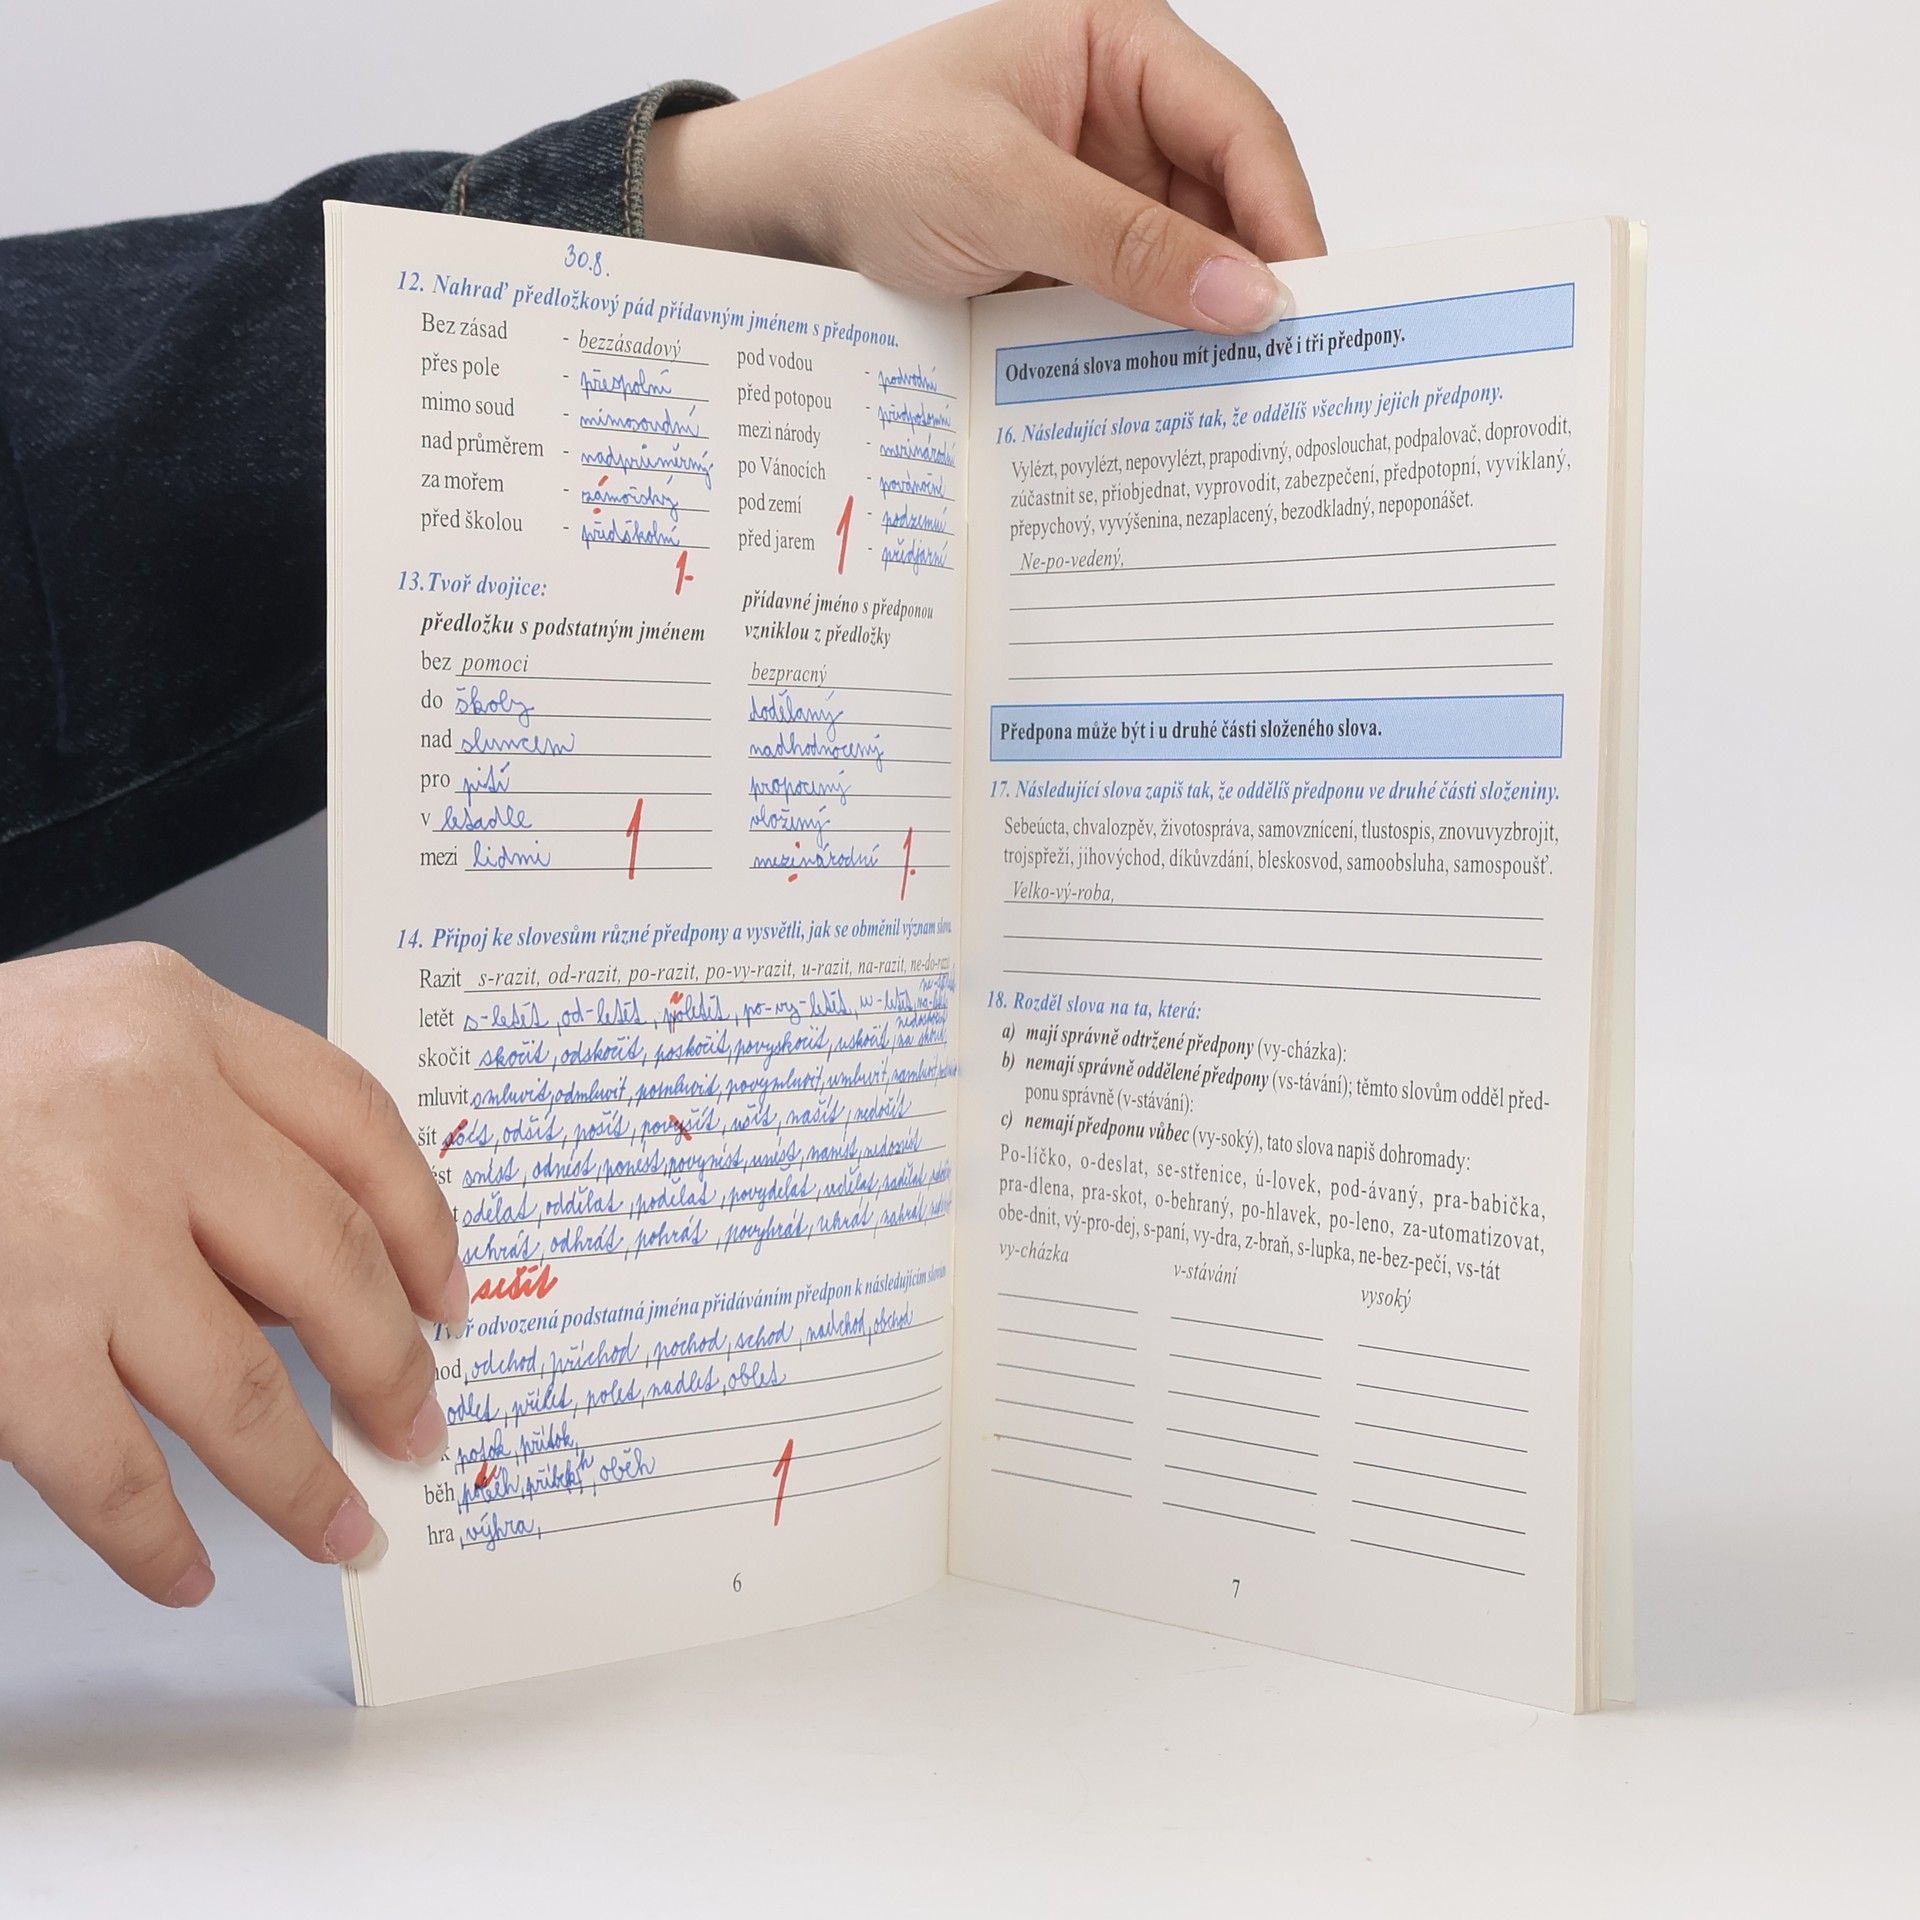 30.8.
12. Nahraď předložkový pád přídavným jménem s předponou.
Bez zásad - bezzásadový pod vodou - podvodní
přes pole - přespolní před potopou - předpotopní
mimo soud - mimosoudní mezi národy - mezinárodní
nad průměrem - nadprůměrný po Vánocích - povánoční
za mořem - zámořský pod zemí - podzemní
před školou - předškolní před jarem - předjarní
1- 1
13. Tvoř dvojice:
předložku s podstatným jménem přídavné jméno s předponou vzniklou z předložky
bez pomoci bezpracný
do školy dodělaný
nad sluncem nadhodnocený
pro pití propocený
v letadle vložený
mezi lidmi mezinárodní
1 1-
14. Připoj ke slovesům různé předpony a vysvětli, jak se obměnil význam slova
Razit s-razit, od-razit, po-razit, po-vy-razit, u-razit, na-razit, ne-do-razi
letět s-letět, od-letět, poletět, po-vy-letět, u-letět, na-letět
skočit skočit, odskočit, poskočit, povyskočit, uskočit, na skočit
mluvit smluvit, odmluvit, pomluvit, povymluvit, umluvit, namluvit
šít odšít, pošít, povyšít, ušít, našít, nedošít
st snést, odnést, ponést, povynést, unést, nanést, nedonést
t sdělat, oddělat, podělat, povydělat, udělat, nadělat
sehrát, odhrát, pohrát, povyhrát, uhrát, nahrát
sešít
Tvoř odvozená podstatná jména přidáváním předpon k následujícím slovům
hod, odchod, příchod, pochod, schod, nadchod, obchod
odlet, přílet, polet, nadlet, oblet
k potok, přítok,
běh, poběh, příběh, oběh
hra, výhra,
1
6
Odvozená slova mohou mít jednu, dvě i tři předpony.
16. Následující slova zapiš tak, že oddělíš všechny jejich předpony.
Vylézt, povylézt, nepovylézt, prapodivný, odposlouchat, podpalovač, doprovodit,
zúčastnit se, přiobjednat, vyprovodit, zabezpečení, předpotopní, vyviklaný,
přepychový, vyvýšenina, nezaplacený, bezodkladný, nepoponášet.
Ne-po-vedený,
Předpona může být i u druhé části složeného slova.
17. Následující slova zapiš tak, že oddělíš předponu ve druhé části složeniny.
Sebeúcta, chvalozpěv, životospráva, samovznícení, tlustospis, znovuvyzbrojit,
trojspřeží, jihovýchod, díkůvzdání, bleskosvod, samoobsluha, samospoušť.
Velko-vý-roba,
18. Rozděl slova na ta, která:
a) mají správně odtržené předpony (vy-cházka):
b) nemají správně oddělené předpony (vs-távání); těmto slovům odděl před-
ponu správně (v-stávání):
c) nemají předponu vůbec (vy-soký), tato slova napiš dohromady:
Po-líčko, o-deslat, se-střenice, ú-lovek, pod-ávaný, pra-babička,
pra-dlena, pra-skot, o-behraný, po-hlavek, po-leno, za-utomatizovat,
obe-dnit, vý-pro-dej, s-paní, vy-dra, z-braň, s-lupka, ne-bez-pečí, vs-tát
vy-cházka v-stávání vysoký
7